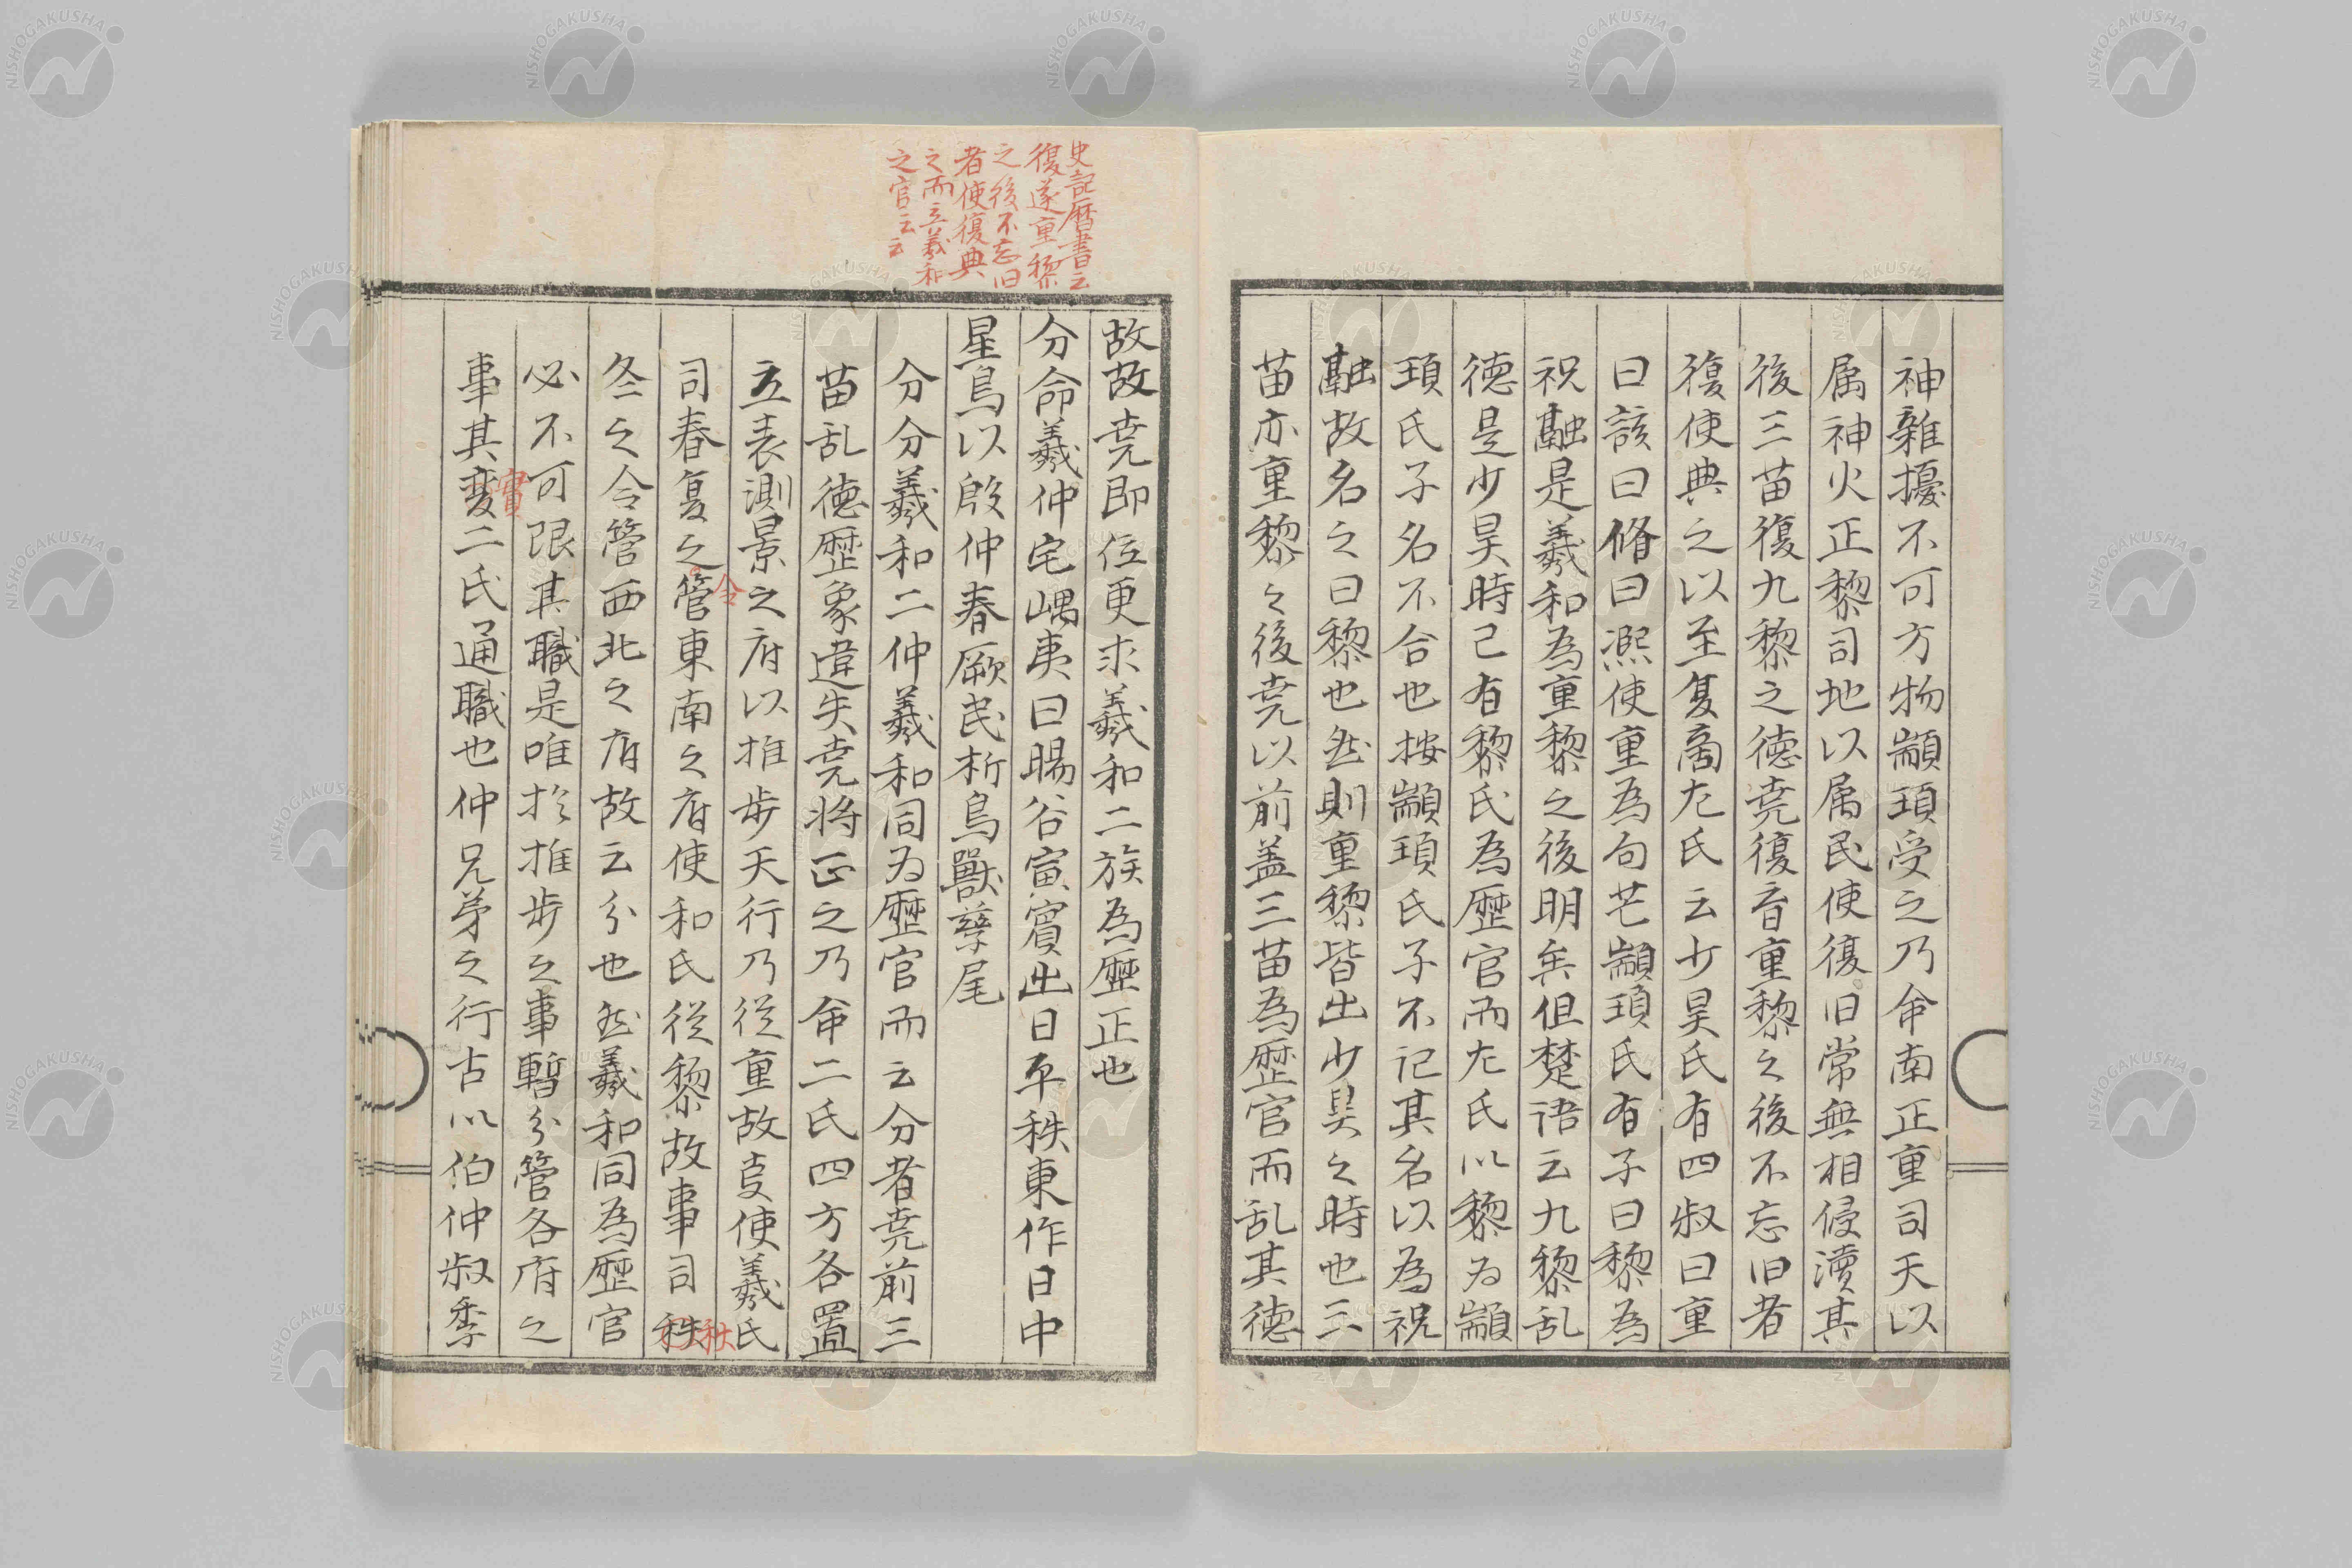 神雜擾不可方物顓頊受之乃命南正重司天以
属神火正黎司地以属民使復旧常無相侵瀆其
後三苗復九黎之徳尭復育重黎之後不忘旧者
復使典之以至夏商左氏云少昊氏有四叔曰重
曰該曰脩曰熈使重為句芒顓頊氏有子曰黎為
祝融是羲和為重黎之後明矣但楚语云九黎乱
徳是少昊時已有黎氏為歴官而左氏以黎为顓
頊氏子名不合也按顓頊氏子不記其名以為祝
融故名之曰黎也然則重黎皆出少昊之時也三
苗亦重黎之後尭以前盖三苗為歴官而乱其徳
故故尭即位更求羲和二族為歴正也
分命羲仲宅嵎夷曰暘谷寅賓出日平秩東作日中
星鳥以殷仲春厥民析鳥獸孳尾
分分羲和二仲羲和同为歴官而云分者尭前三
苗乱徳歴象違失尭将正之乃命二氏四方各置
立表測景之府以推步天行乃従重故事使羲氏
司春夏之管東南之府使和氏従黎故事司秩
令
秋
冬之令管西北之府故云分也然羲和同為歴官
必不可限其職是唯於推步之事暫分管各府之
事其変二氏通職也仲兄弟之行古以伯仲叔季
實
史記暦書云
復遂重黎
之後不忘旧
者使復典
之而立羲和
之官云云
NISHOGAKUSHA